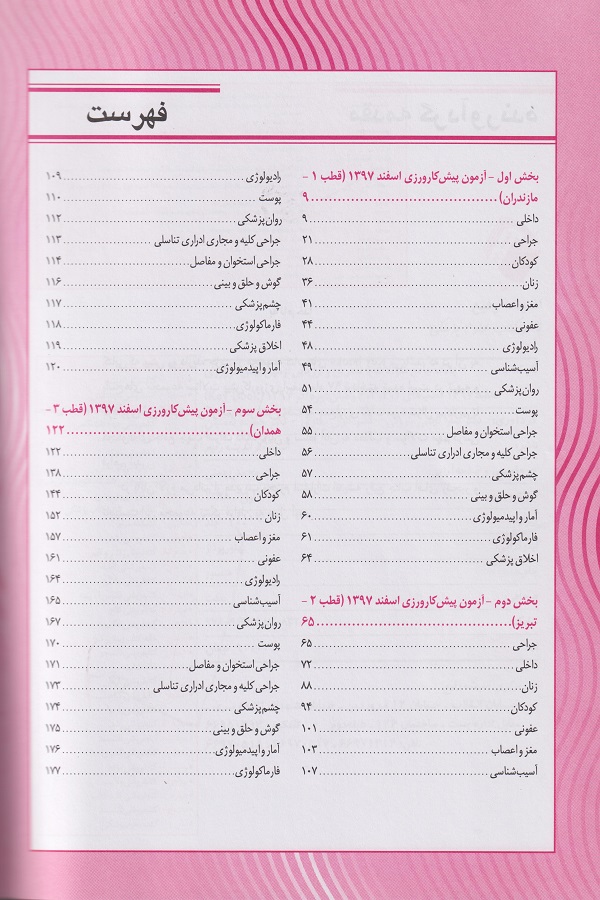 فهرست
بخش اول - آزمون پیش‌کارورزی اسفند ۱۳۹۷ (قطب ۱ -
مازندران) ........ ۹
داخلی ........ ۹
جراحی ........ ۲۱
کودکان ........ ۲۸
زنان ........ ۳۶
مغز و اعصاب ........ ۴۱
عفونی ........ ۴۴
رادیولوژی ........ ۴۸
آسیب‌شناسی ........ ۴۹
روان‌پزشکی ........ ۵۱
پوست ........ ۵۴
جراحی استخوان و مفاصل ........ ۵۵
جراحی کلیه و مجاری ادراری تناسلی ........ ۵۶
چشم‌پزشکی ........ ۵۷
گوش و حلق و بینی ........ ۵۸
آمار و اپیدمیولوژی ........ ۶۰
فارماکولوژی ........ ۶۱
اخلاق پزشکی ........ ۶۴
بخش دوم - آزمون پیش‌کارورزی اسفند ۱۳۹۷ (قطب ۲ -
تبریز) ........ ۶۵
جراحی ........ ۶۵
داخلی ........ ۷۲
زنان ........ ۸۸
کودکان ........ ۹۴
عفونی ........ ۱۰۱
مغز و اعصاب ........ ۱۰۳
آسیب‌شناسی ........ ۱۰۷
رادیولوژی ........ ۱۰۹
پوست ........ ۱۱۰
روان‌پزشکی ........ ۱۱۲
جراحی کلیه و مجاری ادراری تناسلی ........ ۱۱۳
جراحی استخوان و مفاصل ........ ۱۱۴
گوش و حلق و بینی ........ ۱۱۶
چشم‌پزشکی ........ ۱۱۷
فارماکولوژی ........ ۱۱۸
اخلاق پزشکی ........ ۱۱۹
آمار و اپیدمیولوژی ........ ۱۲۰
بخش سوم - آزمون پیش‌کارورزی اسفند ۱۳۹۷ (قطب ۳ -
همدان) ........ ۱۲۲
داخلی ........ ۱۲۲
جراحی ........ ۱۳۸
کودکان ........ ۱۴۴
زنان ........ ۱۵۲
مغز و اعصاب ........ ۱۵۷
عفونی ........ ۱۶۱
رادیولوژی ........ ۱۶۴
آسیب‌شناسی ........ ۱۶۵
روان‌پزشکی ........ ۱۶۷
پوست ........ ۱۷۰
جراحی استخوان و مفاصل ........ ۱۷۱
جراحی کلیه و مجاری ادراری تناسلی ........ ۱۷۳
چشم‌پزشکی ........ ۱۷۴
گوش و حلق و بینی ........ ۱۷۵
آمار و اپیدمیولوژی ........ ۱۷۶
فارماکولوژی ........ ۱۷۷